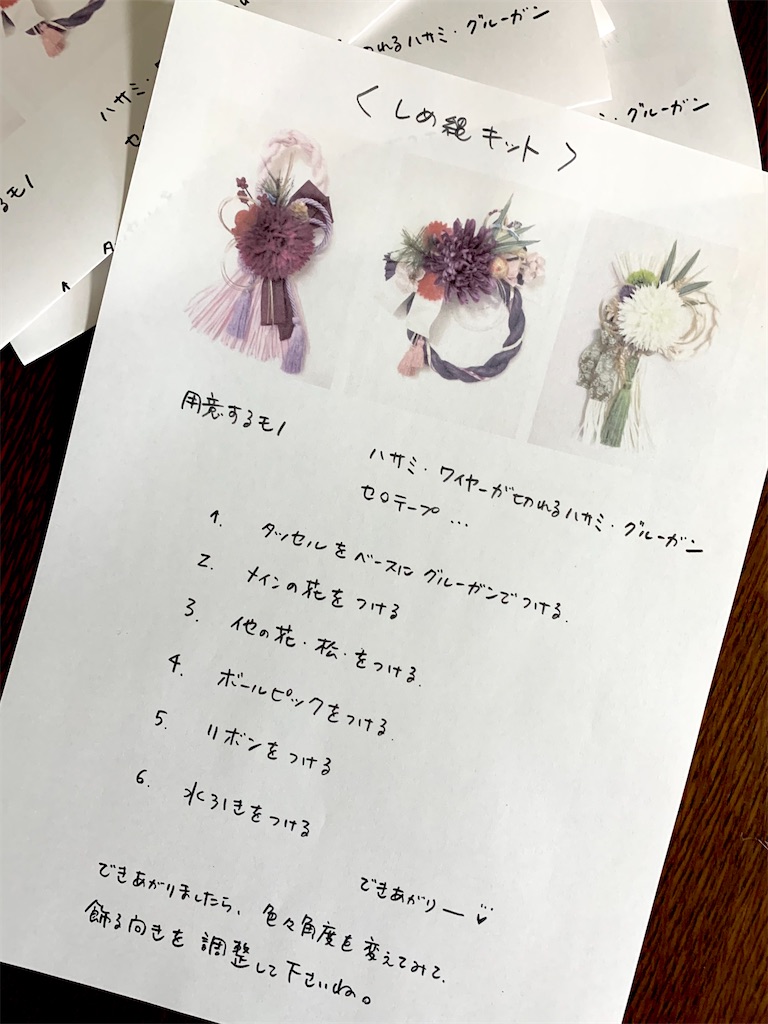 ワイヤーが切れるハサミ・グルーガン
ハサミ・
・グルーガン
セ
るモノ
1
タ
〈しめ縄キット〉
用意するモノ
ハサミ・ワイヤーが切れるハサミ・グルーガン
セロテープ…
1. タッセルをベースにグルーガンでつける.
2. メインの花をつける
3. 他の花・松・をつける.
4. ボールピックをつける.
5. リボンをつける
6. 水引きをつける
できあがりー
できあがりましたら、色々角度を変えてみて、
飾る向きを調整して下さいね。